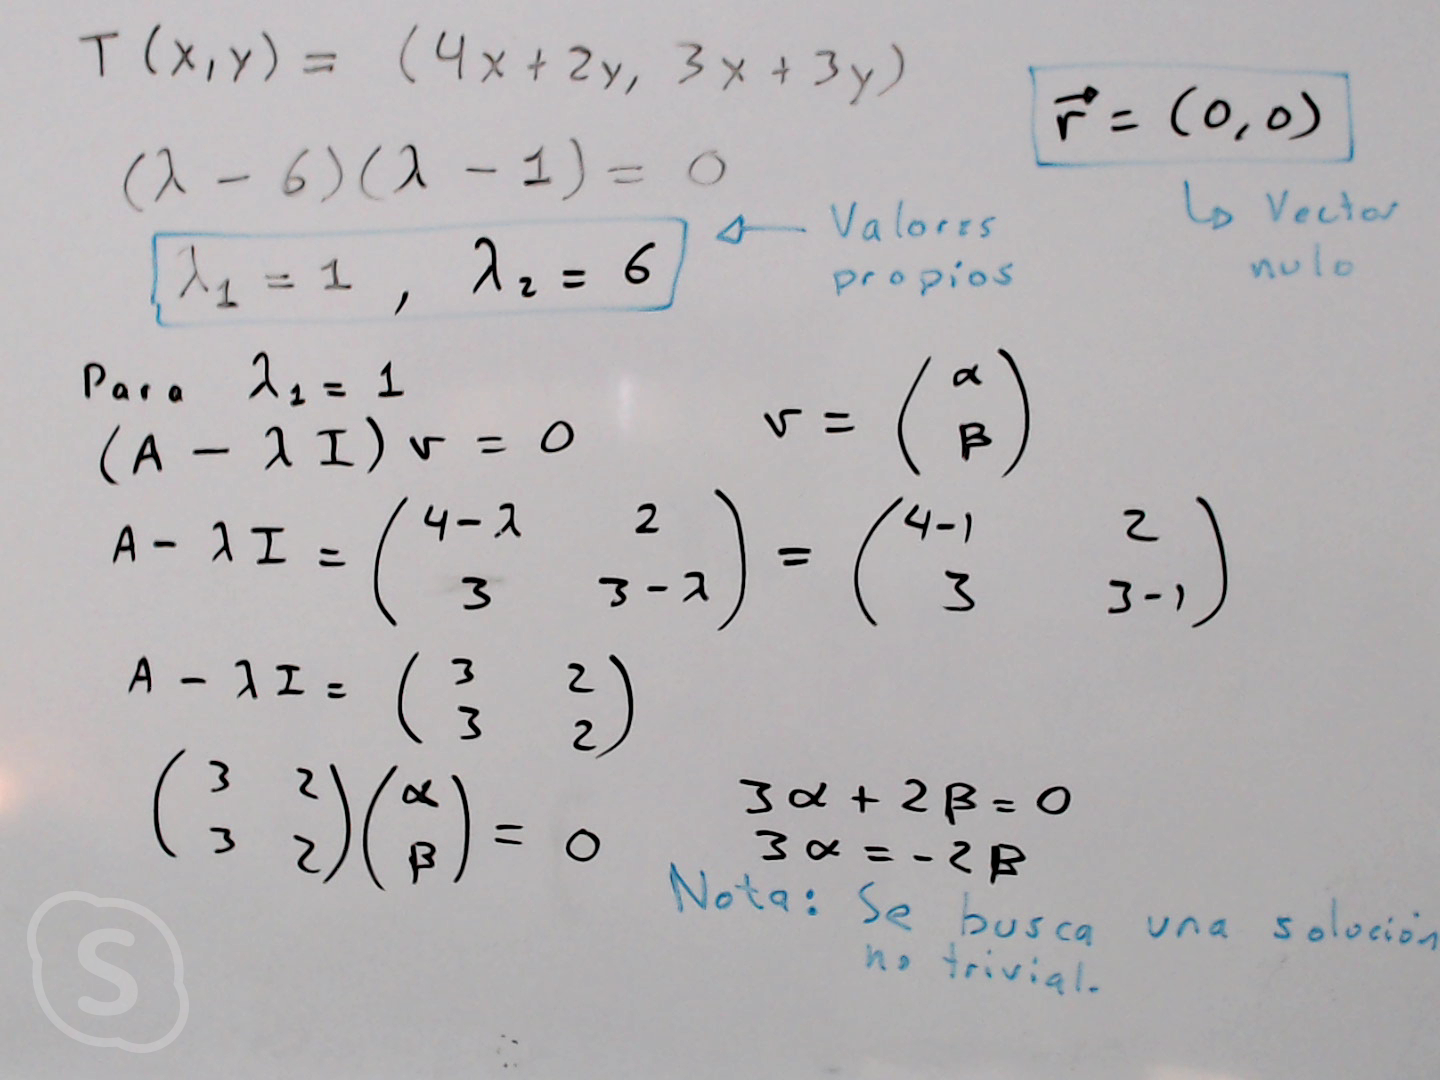 T(x,y) = (4x+2y, 3x+3y)
r⃗ = (0,0)
↳ Vector
nulo
(λ - 6)(λ - 1) = 0
λ₁ = 1 , λ₂ = 6
← Valores
propios
Para λ₁ = 1
(A - λI)v = 0
v = (α
β)
A - λI = (4-λ 2
3 3-λ) = (4-1 2
3 3-1)
A - λI = (3 2
3 2)
(3 2
3 2)(α
β) = 0
3α + 2β = 0
3α = -2β
Nota: Se busca una solución
no trivial.
S